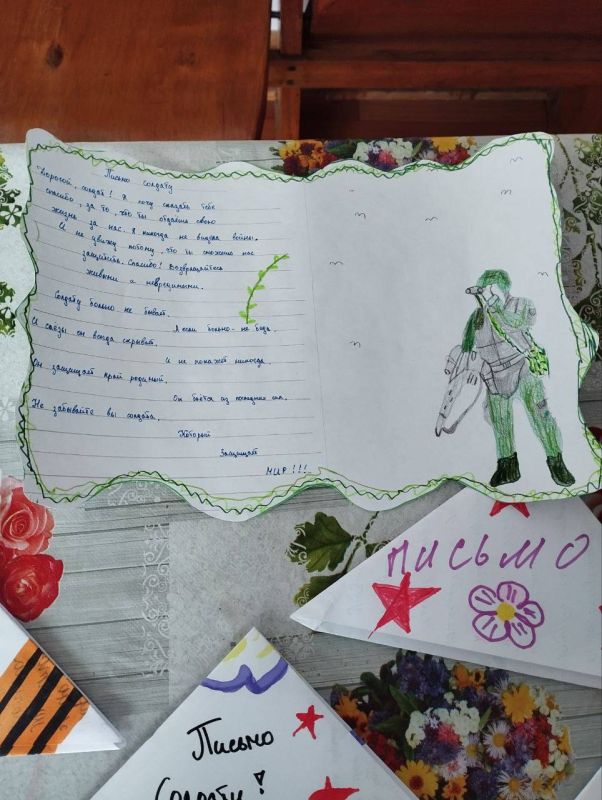 Письмо солдату
"Дорогой, солдат! Я хочу сказать тебе
спасибо, за то, что ты отдаёшь свою
жизнь за нас. Я никогда не видела войны.
И не увижу потому, что ты сможешь нас
защитить. Спасибо! Возвращайтесь
живыми и невредимыми.
Солдату больно не бывает.
А если больно - не беда.
И слёзы он всегда скрывает.
И не покажет никогда.
Он защищает край родимый.
Он бьётся из последних сил.
Не забывайте вы солдата.
Который
Защищает
МИР!!!
ПИСЬМО
Письмо
Солдату!